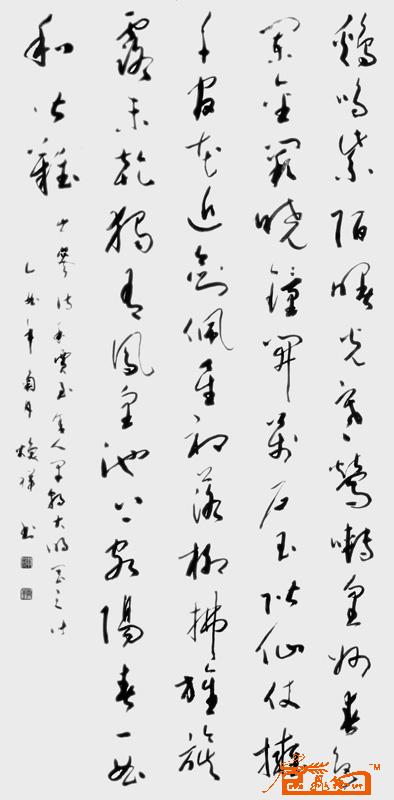 鷄鳴紫陌曙光寒鶯囀皇州春色
闌金闕曉鐘開萬戶玉階仙仗擁
千官花迎劍佩星初落柳拂旌旗
露未乾獨有鳳皇池上客陽春一曲
和皆難
岑參詩和賈至舍人早朝大明宮之作
乙酉年菊月煥祥書